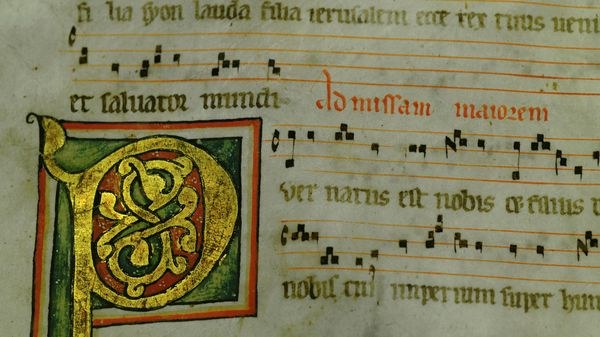 fi lia syon lauda filia ierusalem ecce rex tuus veni
et saluator mundi Ad missam maiorem
P ver natus est nobis et filius
nobis cui imperium super hum